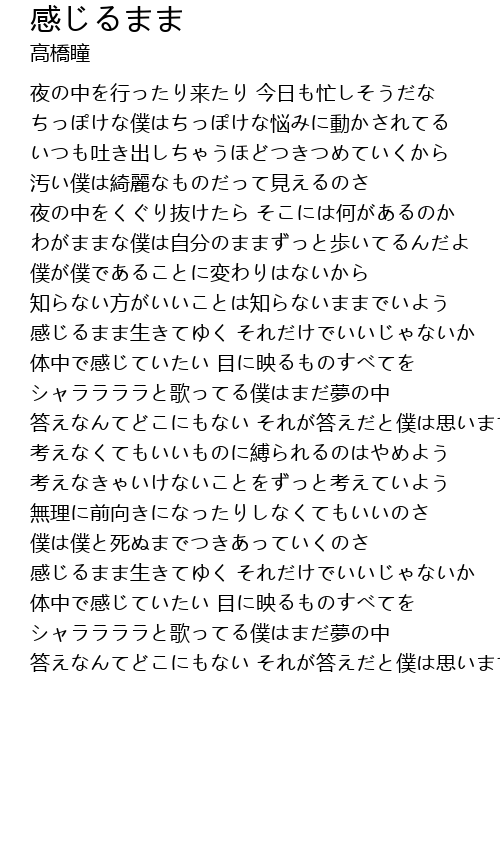 感じるまま
高橋瞳
夜の中を行ったり来たり 今日も忙しそうだな
ちっぽけな僕はちっぽけな悩みに動かされてる
いつも吐き出しちゃうほどつきつめていくから
汚い僕は綺麗なものだって見えるのさ
夜の中をくぐり抜けたら そこには何があるのか
わがままな僕は自分のままずっと歩いてるんだよ
僕が僕であることに変わりはないから
知らない方がいいことは知らないままでいよう
感じるまま生きてゆく それだけでいいじゃないか
体中で感じていたい 目に映るものすべてを
シャララララと歌ってる僕はまだ夢の中
答えなんてどこにもない それが答えだと僕は思いま
考えなくてもいいものに縛られるのはやめよう
考えなきゃいけないことをずっと考えていよう
無理に前向きになったりしなくてもいいのさ
僕は僕と死ぬまでつきあっていくのさ
感じるまま生きてゆく それだけでいいじゃないか
体中で感じていたい 目に映るものすべてを
シャララララと歌ってる僕はまだ夢の中
答えなんてどこにもない それが答えだと僕は思いま